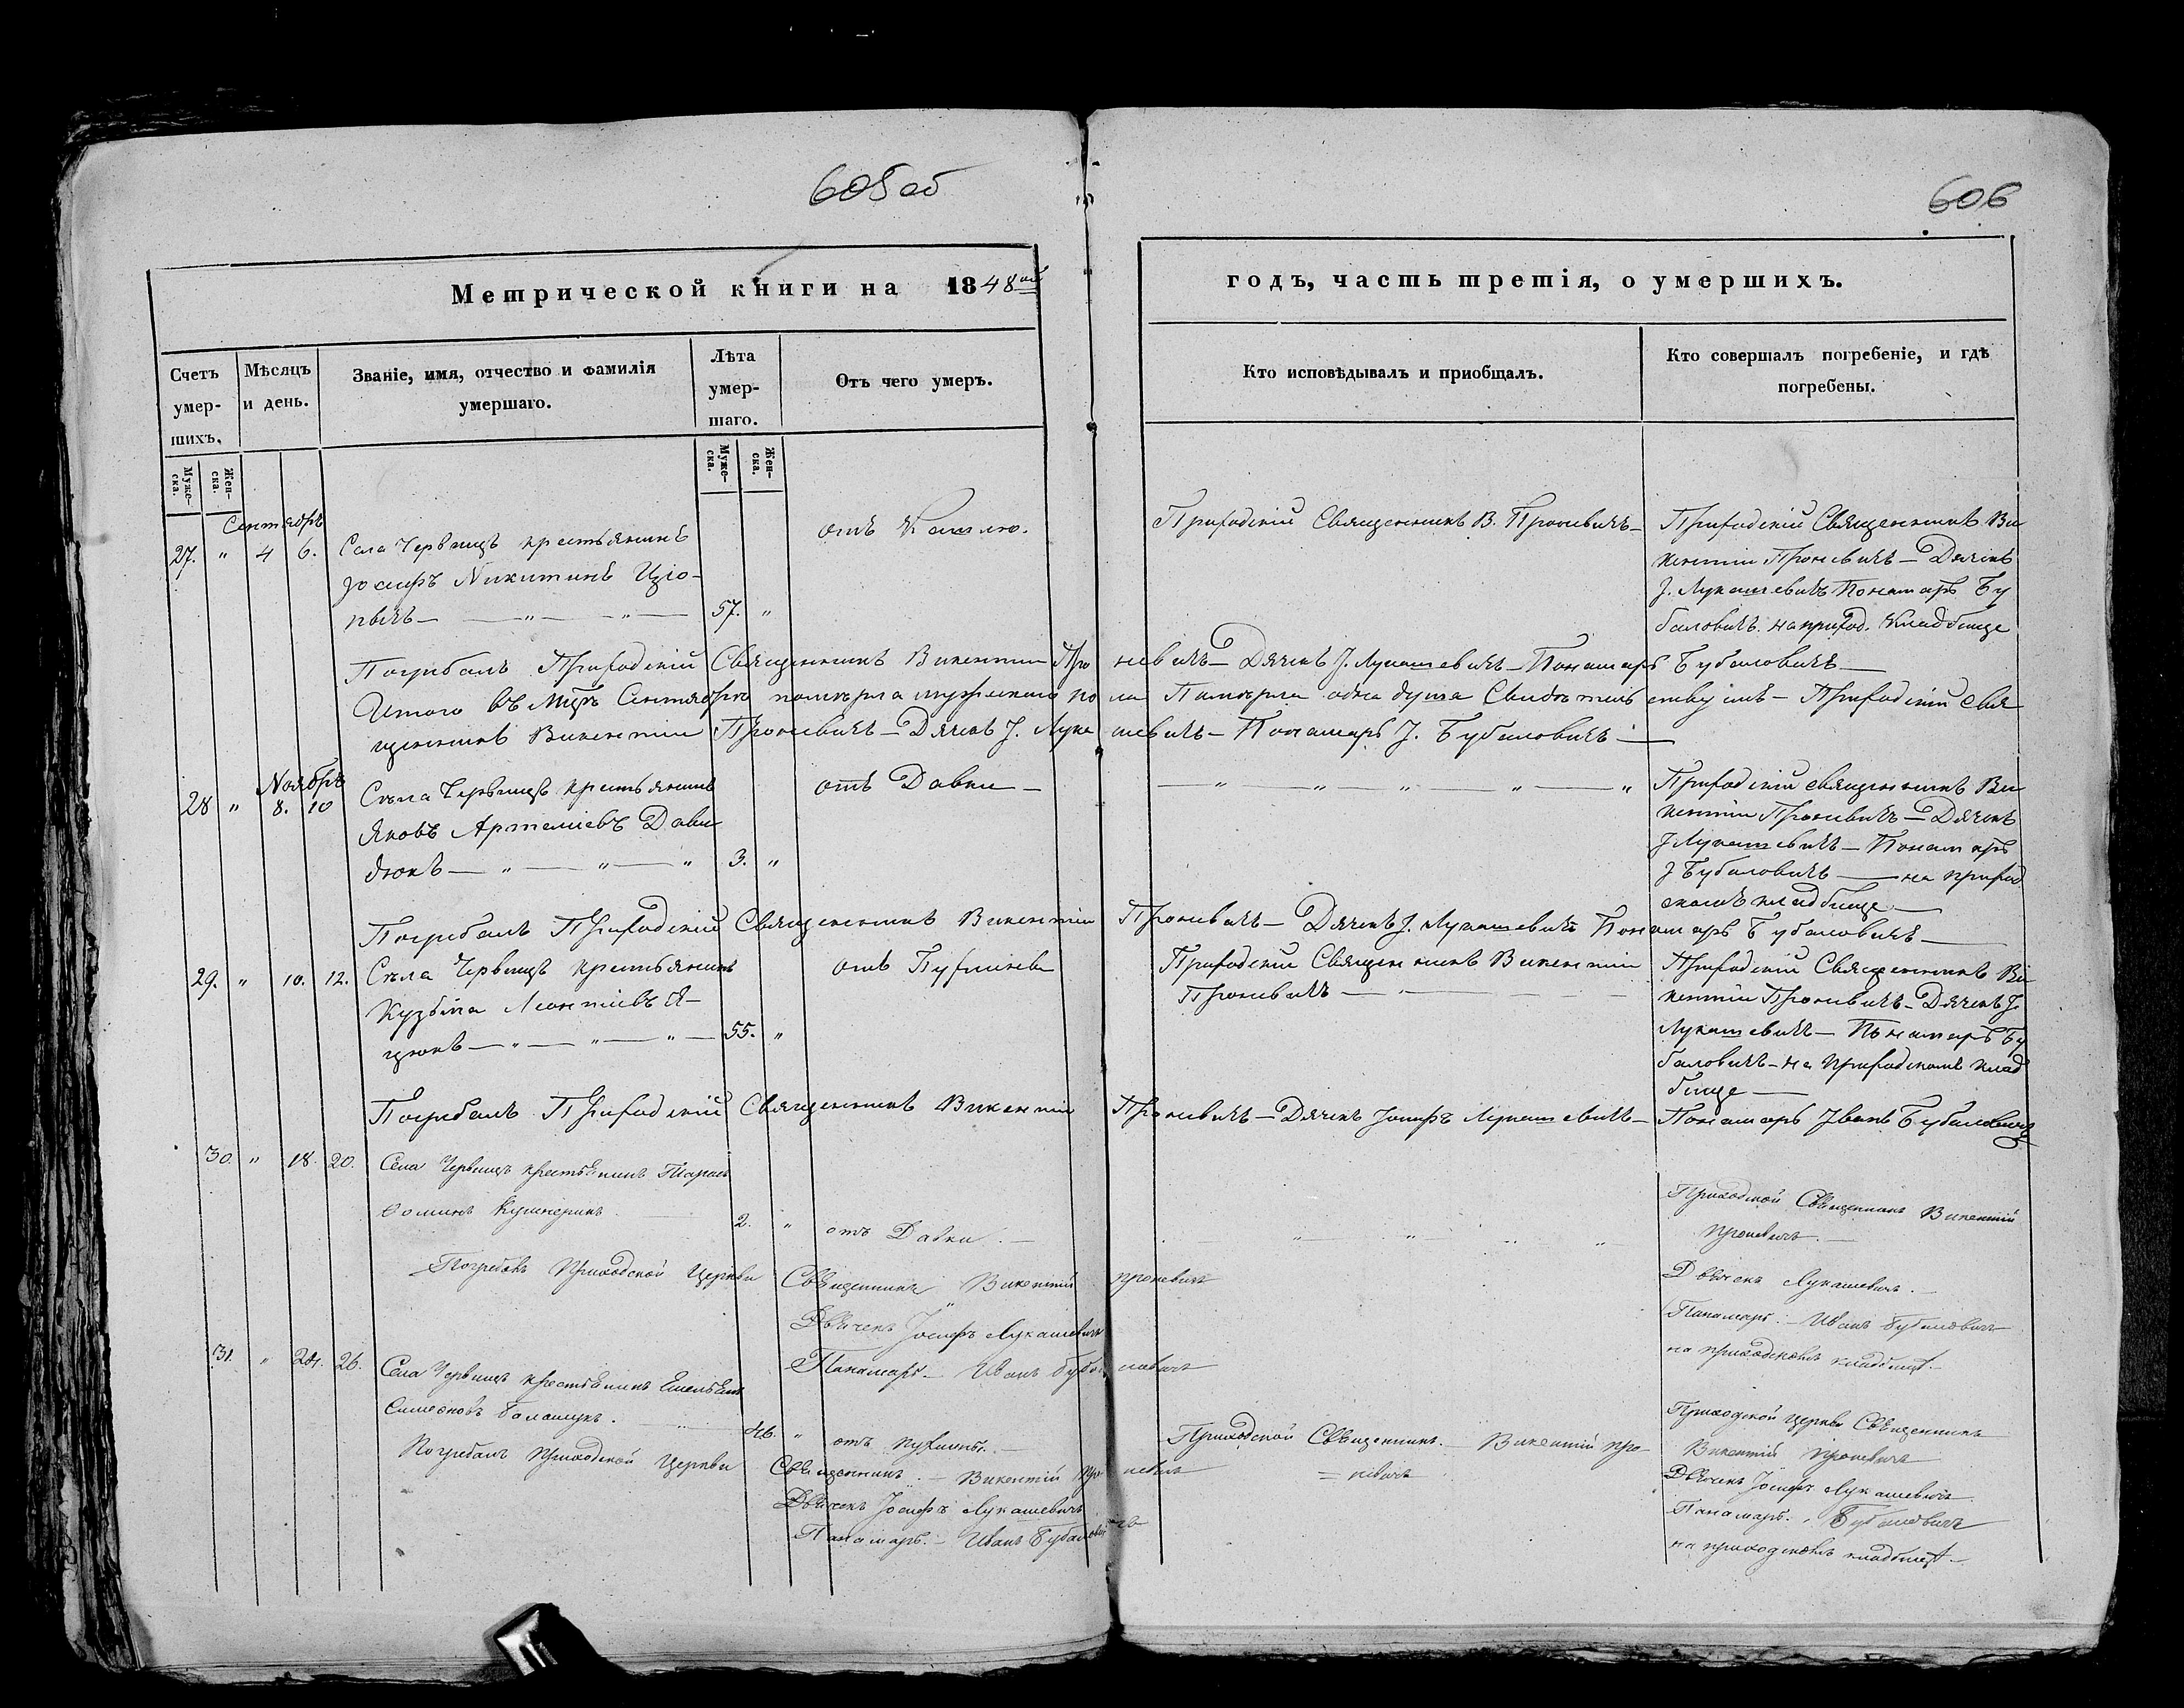 605 об
606
Метрической книги на 1848ой
годъ, часть третія, о умершихъ.
Счетъ умер-шихъ.
Мѣсяцъ и день.
Званіе, имя, отчество и фамилія умершаго.
Лѣта умер-шаго.
Отъ чего умеръ.
Кто исповѣдывалъ и приобщалъ.
Кто совершалъ погребеніе, и гдѣ погребены.
Муже-ска.
Жен-ска.
Муже-ска.
Жен-ска.
Сентябрь
27. " 4 6.
Села Червищъ крестьянинъ
Іосифъ Никитинъ
57. "
отъ Кашлю.
Приходскій Священникъ В. Проневичъ —
Приходскій Священникъ Ви
кентій Проневичъ — Дячекъ
J. Лукашевичъ Понамарь Бу
баловичъ. на приход. Кладбище
Погребалъ Приходскій Священникъ Викентій Проневичъ — Дячекъ J. Лукашевичъ — Понамарь Бубаловичъ —
Итого въ Мцѣ Сентябрѣ помѣрла мужеского пола Памѣрла одна душа Свидѣтельствуемъ — Приходскій Свя
щенникъ Викентій Проневичъ — Дячекъ J. Лукашевичъ — Понамарь J. Бубаловичъ —
Ноябрь
28 " 8. 10
Села Червищъ крестьянинъ
Яковъ Артемiевъ Дави
дюкъ — " — " — "
3. "
отъ Давки —
— " — " — " — " — "
Приходскій священникъ Ви
кентій Проневичъ — Дячекъ
J Лукашевичъ — Понамарь
J Бубаловичъ — на приход
скомъ кладбище —
Погребалъ Приходскій Священникъ Викентій Проневичъ — Дячекъ J. Лукашевичъ Понамарь Бубаловичъ —
29. " 10. 12.
Села Червищъ крестьянинъ
Кузьма Леонтіевъ Я-
цюкъ — " — " — " —
55. "
отъ Пухлины
Приходскій Священникъ Викентій
Проневичъ —
Приходскій Священникъ Ви
кентій Проневичъ — Дячекъ J.
Лукашевичъ — Понамарь Бу
баловичъ — на приходскомъ клад
бище —
Погребалъ Приходскій Священникъ Викентій Проневичъ — Дячекъ Іосифъ Лукашевичъ — Понамарь Іванъ Бубаловичъ
30. " 18. 20.
Села Червищъ крестьянинъ Тарасъ
Ѳоминъ Кушнерикъ.
2. "
отъ Давки. —
" — " — " — "
Приходской Свѣщенникъ Викентій
Проневичъ. —
Дьячекъ Лукашевичъ. —
Панамарь. — Иванъ Бубаловичъ
на приходскомъ кладбищѣ. —
Погребалъ Приходской Церкви Свѣщенникъ Викентій Проневичъ
Дьячекъ Іосифъ Лукашевичъ
Панамарь. — Иванъ Бубаловичъ
31. " 24. 26.
Села Червищъ крестьянинъ Емельянъ
Симеоновъ
46. "
отъ пухлины. —
Приходской Свѣщенникъ. — Викентій Про-
= невичъ
Приходской Церкви Свѣщенникъ
Викентій Проневичъ
Дьячекъ Іосифъ Лукашевичъ
Панамарь. Бубаловичъ
на приходскомъ кладбищѣ. —
Погребалъ Приходской Церкви Свѣщенникъ. — Викентій Проневичъ
Дьячекъ Іосифъ Лукашевичъ
Панамарь. — Иванъ Бубаловичъ